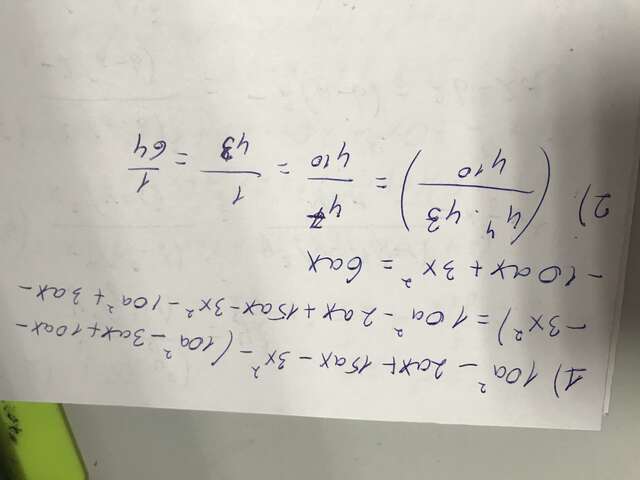 1) 10a² - 2ax + 15ax - 3x² - (10a² - 3ax + 10ax -
- 3x²) = 10a² - 2ax + 15ax - 3x² - 10a² + 3ax -
- 10ax + 3x² = 6ax
2) (4⁴ · 4³ / 4¹⁰) = 4⁷ / 4¹⁰ = 1 / 4³ = 1 / 64